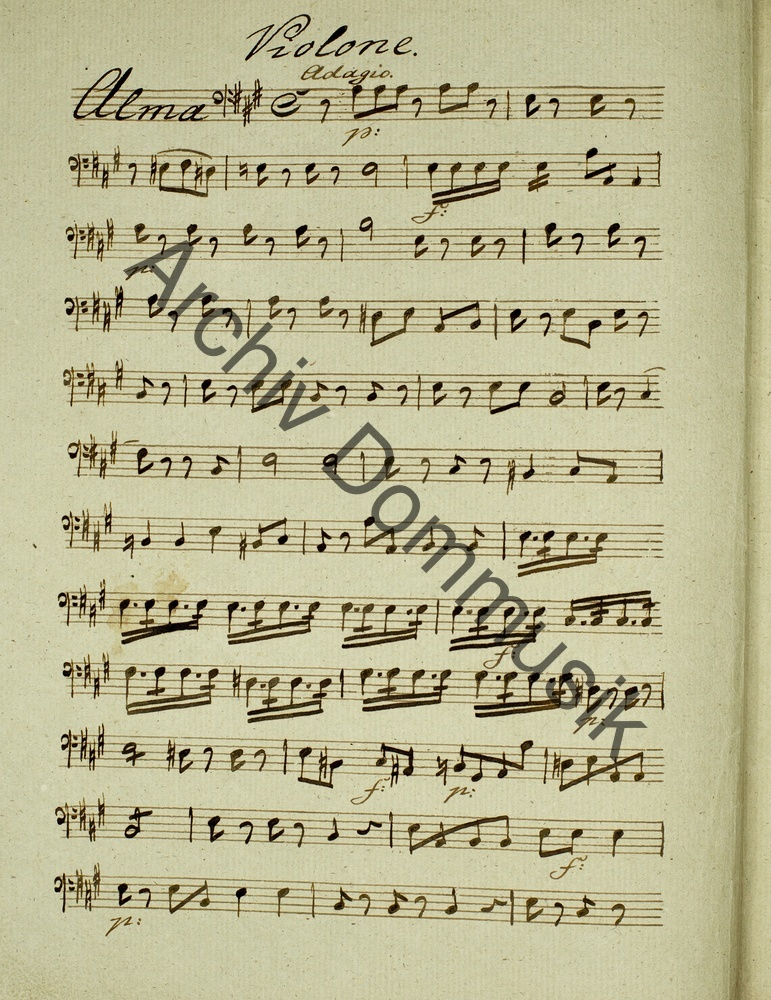 Violone.
Adagio.
Alma
p:
f:
p:
f:
p:
f: p:
f:
p:
Archiv Dommusik